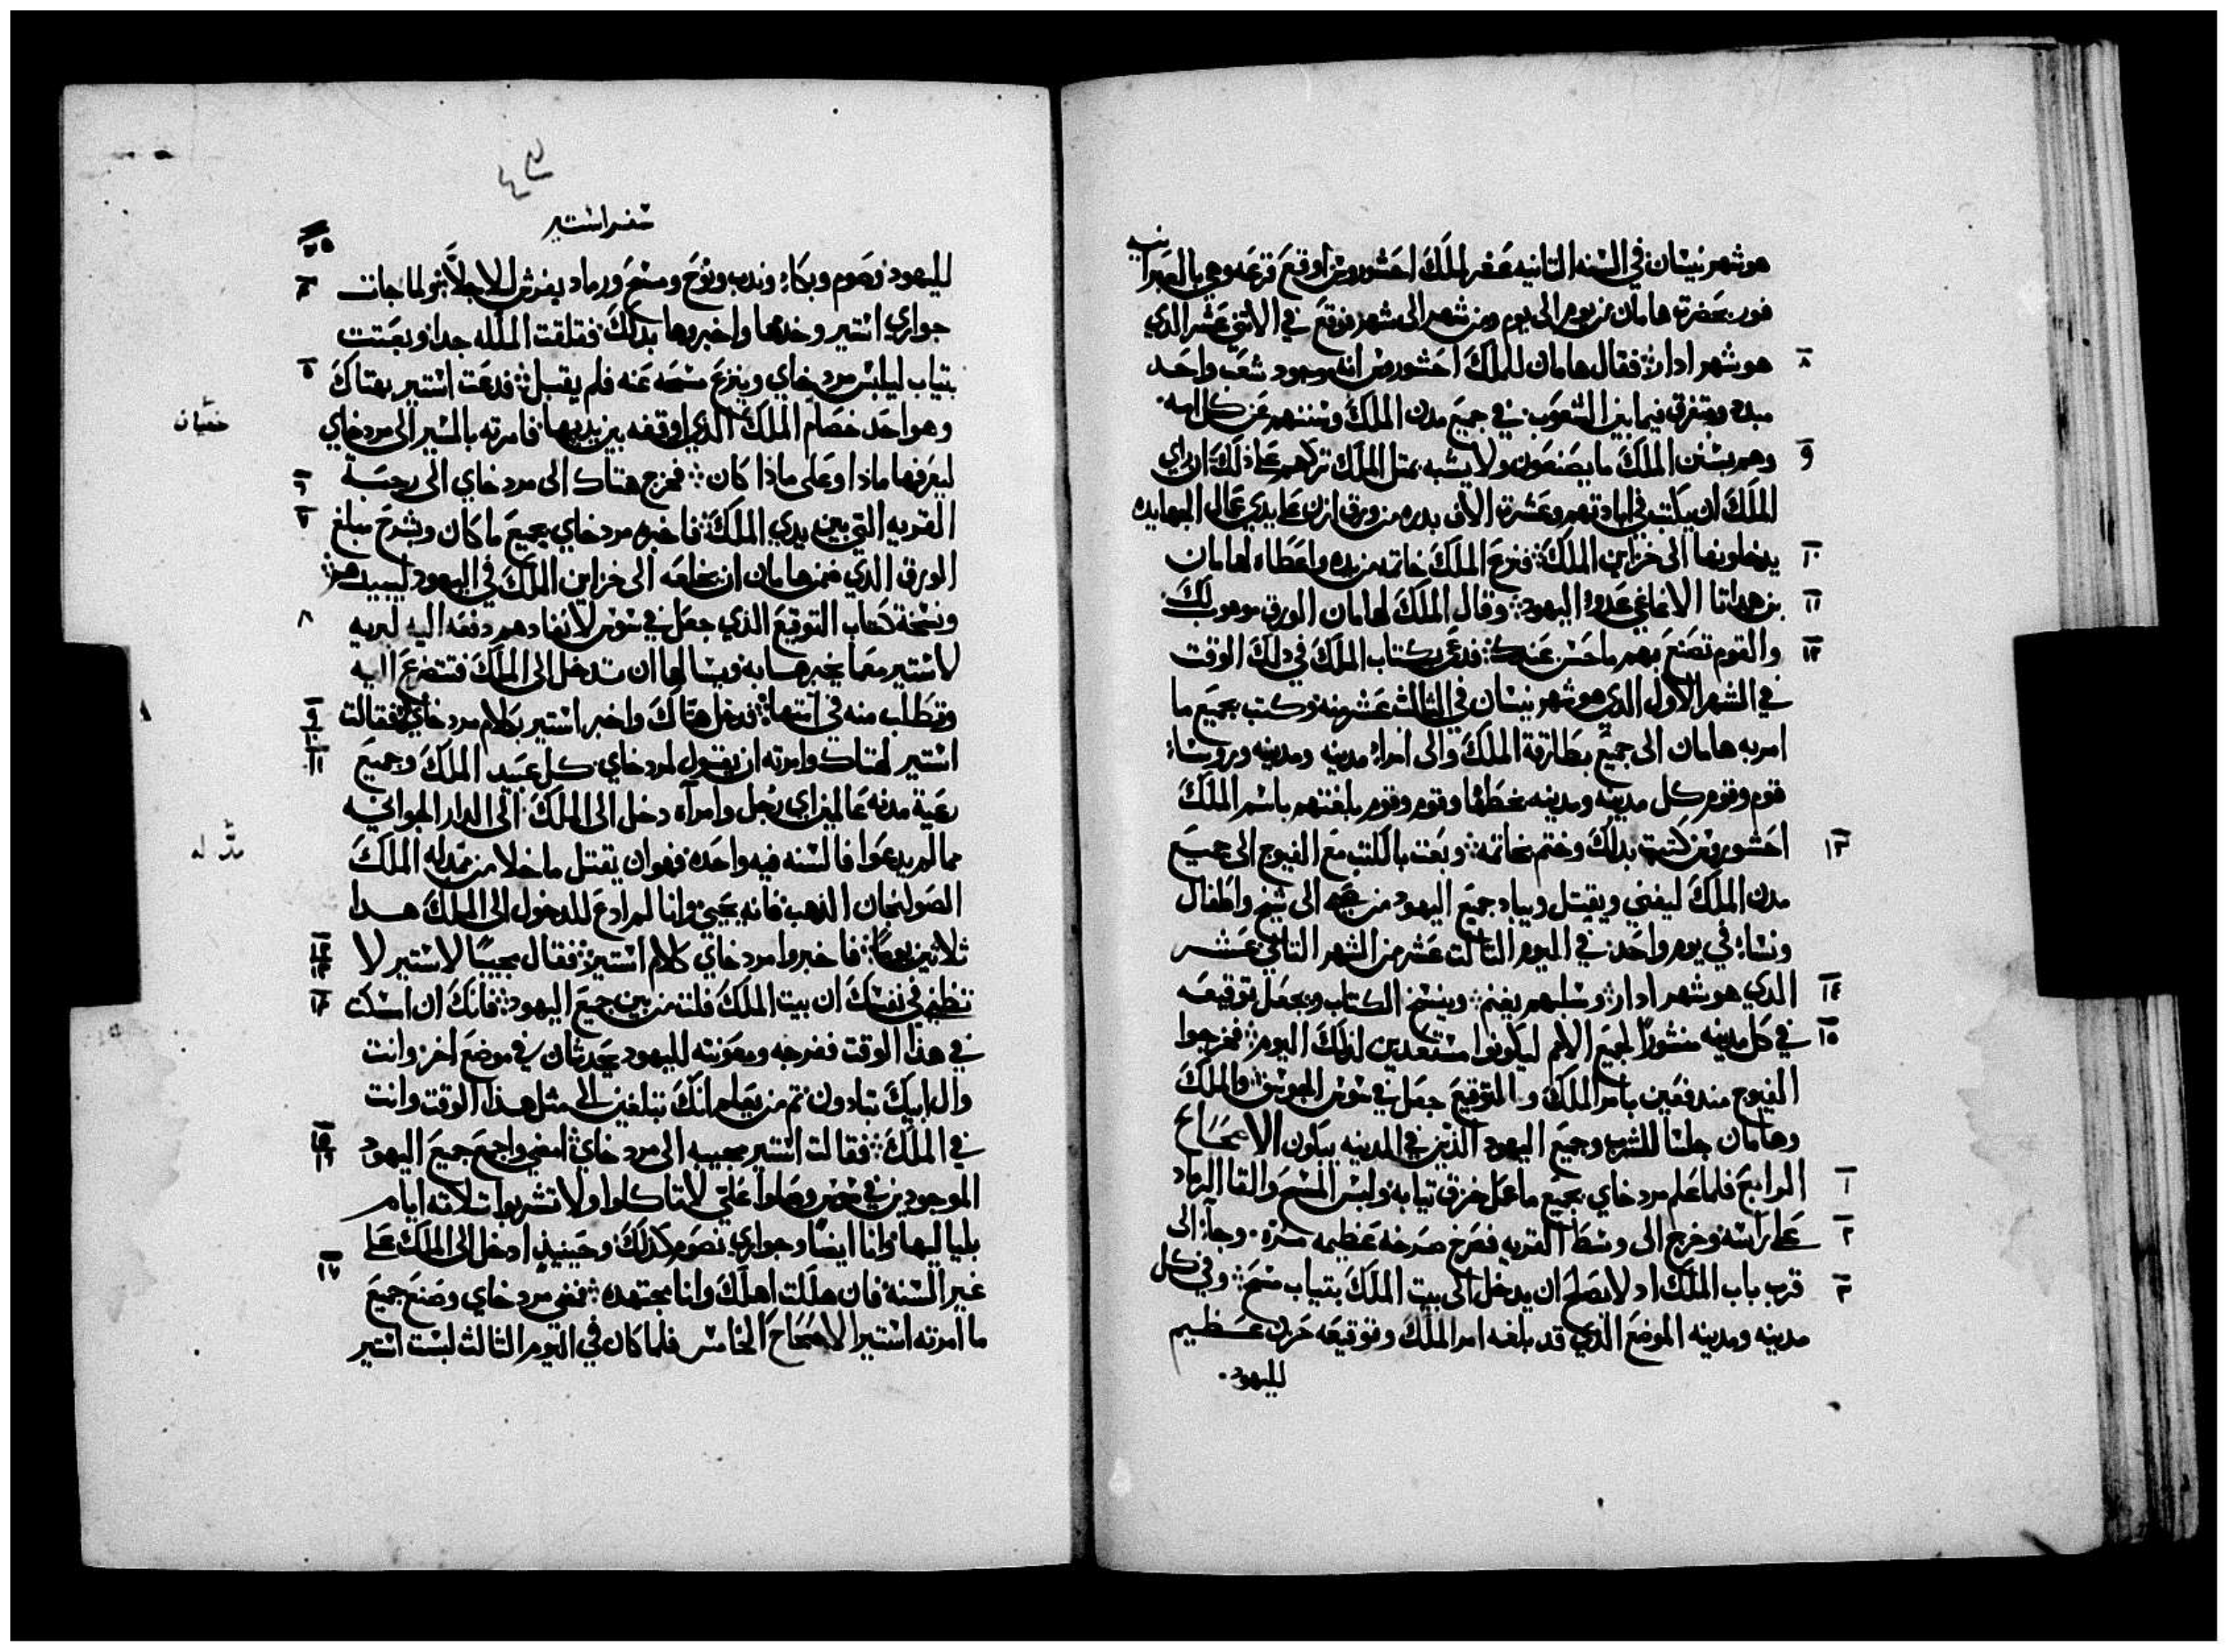 هو شهر نيسان في السنه التانيه عشر للملك احشوروش اوقع قرعه وهي بالعبرانيه
فور بحضرة هامان من يوم الى يوم ومن شهر الى شهر فوقع في الاثني عشر الذي
٨ هو شهر ادار فقال هامان للملك احشوروش انه موجود شعب واحد
مبدد ومتفرق فيما بين الشعوب في جميع مدن الملك وسننهم عن كل امه
٩ وهم بسنن الملك ما يصنعون ولا يشبه بمثل الملك تركهم على ذلك ان راي
الملك ان يكتب في ابادتهم وعشرة الاف بدره من ورق ازن على يدي عمال الجهابده
١٠ يدخلونها الى خزاين الملك فنزع الملك خاتمه من يده واعطاه لهامان
١١ بن همداثا الاغاغي عدو اليهود وقال الملك لهامان الورق موهوب لك
١٢ والقوم تصنع بهم ما حسن عندك فدعي بكتاب الملك في ذلك الوقت
في الشهر الاول الذي هو شهر نيسان في الثالث عشر منه وكتب بجميع ما
امر به هامان الى جميع بطارقة الملك والى امراء مدينه ومدينه وروساء
قوم وقوم كل مدينه ومدينه بخطها وقوم وقوم بلغتهم باسم الملك
١٣ احشوروش كتبت بذلك وختم بخاتمه وبعت بالكتب مع الفيوج الى جميع
مدن الملك ليفني ويقتل ويباد جميع اليهود من صبي الى شيخ واطفال
ونساء في يوم واحد في اليوم الثالت عشر من الشهر الثاني عشر
١٤ الذي هو شهر ادار وسلبهم يغنم وينسخ الكتاب ويجعل توقيعه
١٥ في كل مدينه منشورا لجميع الامم ليكونوا مستعدين لذلك اليوم فخرجوا
الفيوج مندفعين بامر الملك والتوقيع جعل في سوس الجوسق والملك
وهامان جلسا للشرب وجميع اليهود الذين في المدينه يبكون الاصحاح
١ الرابع فلما علم مردخاي بجميع ما عمل خرق ثيابه ولبس المسح والقا الرماد
٢ على راسه وخرج الى وسط القريه فصرخ صرخه عظيمه مره وجاء الى
٣ قرب باب الملك اد لا يصلح ان يدخل الى بيت الملك بتياب مسح وفي كل
مدينه ومدينه الموضع الذي قد بلغه امر الملك وتوقيعه حزن عظيم
لليهود
سفر استير
٢٥
لليهود وصوم وبكاء وندب ونوح ومسح ورماد يفرش للاجلا ثم لما جات ٤
جواري استير وخدمها واخبروها بذلك فقلقت الملكه جدا وبعتت
بتياب ليلبس مردخاي وينزع مسحه عنه فلم يقبل فدعت استير بهتاك ٥
خصيان
وهو احد خصام الملك الذي اوقفه بين يديها فامرته بالمسير الى مردخاي
ليعرفها ماذا وعلى ماذا كان فخرج هتاك الى مردخاي الى رحبة ٦
القريه التي بين يدي الملك فاخبره مردخاي بجميع ما كان وبشرح مبلغ ٧
الورق الذي ضمن هامان ان يحمله الى خزاين الملك في اليهود ليبيدهم
ونسخة كتاب التوقيع الذي جعل في سوس لانفادهم دفعه اليه ليريه ٨
لاستير معما يخبرها به ويسالها ان تدخل الى الملك فتتضرع اليه
وتطلب منه في امتها فدخل هتاك واخبر استير بكلام مردخاي فقالت ٩ ١٠
استير لهتاك وامرته ان يقول لمردخاي كل عبيد الملك وجميع ١١
رعية مدنه عالمين اي رجل وامراه دخل الى الملك الى الدار الجوانيه
مدّ له
مما لم يدعوا فالسنه فيه واحده فهو ان يقتل ما خلا من يمد له الملك
الصولجان الذهب فانه يحيى وانا لم ادع للدخول الى الملك هدا
ثلاثين يوما فاخبروا مردخاي كلام استير فقال مجيبا لاستير لا ١٢ ١٣
تظني في نفسك ان بيت الملك فلتت من بين جميع اليهود فانك ان اسكت ١٤
في هذا الوقت ففرجه ومعونته لليهود يحدثان في موضع اخر وانت
وال ابيك تبادون ثم من يعلم انك تبلغين الى مثل هذا الوقت وانت
في الملك فقالت استير مجيبه الى مردخاي امضي واجمع جميع اليهود ١٥ ١٦
الموجودين في سوس وصلوا علي لا تاكلوا ولا تشربوا تلاته ايام
بلياليها وانا ايضا وجواري نصوم كذلك وحينيذ ادخل الى الملك على
غير السنه فان هلكت اهلك وانا مجتهده فمضى مردخاي وصنع جميع ١٧
ما امرته استير الاصحاح الخامس فلما كان في اليوم الثالث لبست استير